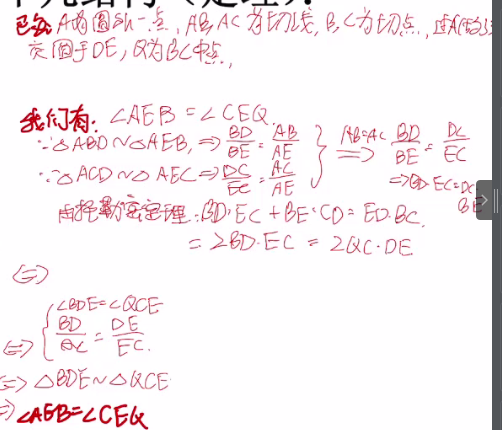 已知 A为圆外一点, AB, AC 为切线, B, C为切点, 过A
交圆于DE, Q为BC中点,
我们有: ∠AEB = ∠CEQ
∵△ABD∽△AEB, ⇒ BD/BE = AB/AE
∵△ACD∽△AEC ⇒ DC/EC = AC/AE } AB=AC ⇒ BD/BE = DC/EC
⇒ BD·EC = DC·BE
由托勒密定理: BD·EC + BE·CD = ED·BC.
= 2BD·EC = 2QC·DE
⇔
⇔ { ∠BDE = ∠QCE
BD/QC = DE/EC.
⇔ △BDE∽△QCE
⇒ ∠AEB=∠CEQ